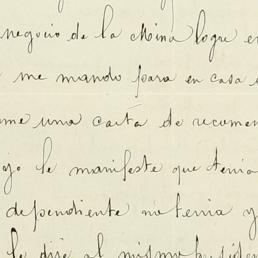 negocio de la Mina logre en
me mando para en casa
me una carta de recomen
jo le manifeste que tenia
dependiente no tenia y
le dije al mismo